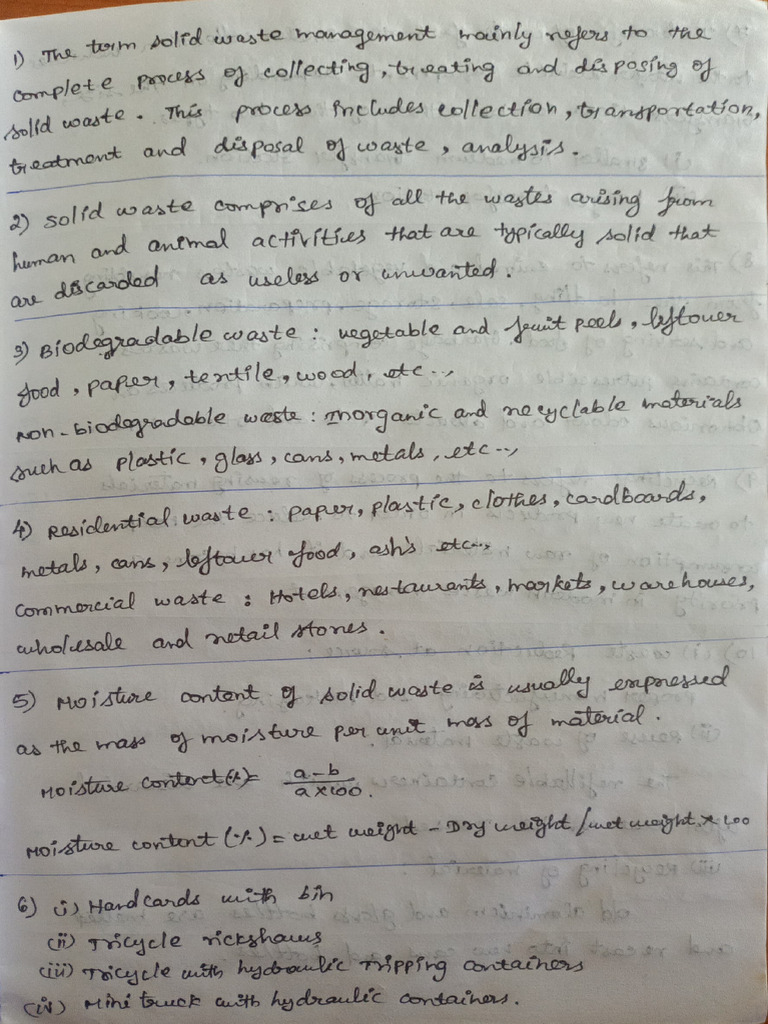 1) The term solid waste management mainly refers to the
complete process of collecting, treating and disposing of
solid waste. This process includes collection, transportation,
treatment and disposal of waste, analysis.
2) solid waste comprises of all the wastes arising from
human and animal activities that are typically solid that
are discarded as useless or unwanted.
3) Biodegradable waste : vegetable and fruit peels, leftover
food, paper, textile, wood, etc..,
Non-biodegradable waste : Inorganic and recyclable materials
such as plastic, glass, cans, metals, etc..,
4) Residential waste : paper, plastic, clothes, cardboards,
metals, cans, leftover food, ash's etc..,
commercial waste : Hotels, restaurants, markets, warehouses,
wholesale and retail stores.
5) Moisture content of solid waste is usually expressed
as the mass of moisture per unit mass of material.
Moisture content(%)= a-b
a×100.
Moisture content (%) = wet weight - Dry weight / wet weight × 100
6) (i) Handcards with bin
(ii) Tricycle rickshaws
(iii) Tricycle with hydraulic Tripping containers
(iv) Mini truck with hydraulic containers.